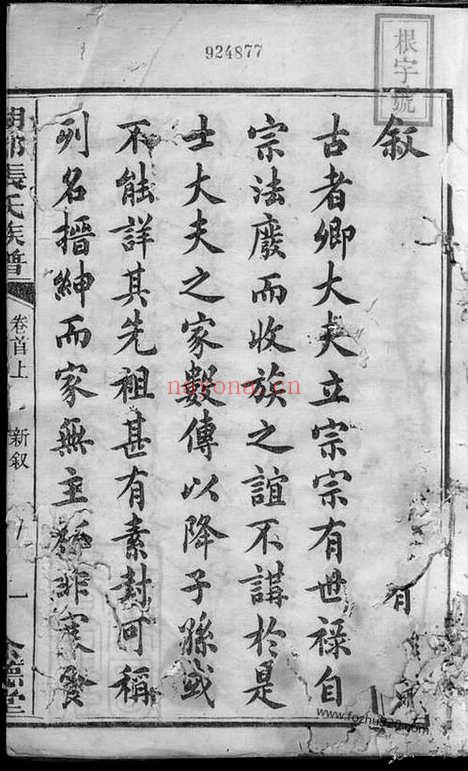 924877
根字號
叙
古者卿大夫立宗宗有世祿自
宗法廢而收族之誼不講於是
士大夫之家數傳以降子孫或
不能詳其先祖甚有素封可稱
列名搢紳而家無主祏非寔發
張氏族譜
卷首上
新叙
一
有
nayona.cn
www.fozhu920.com